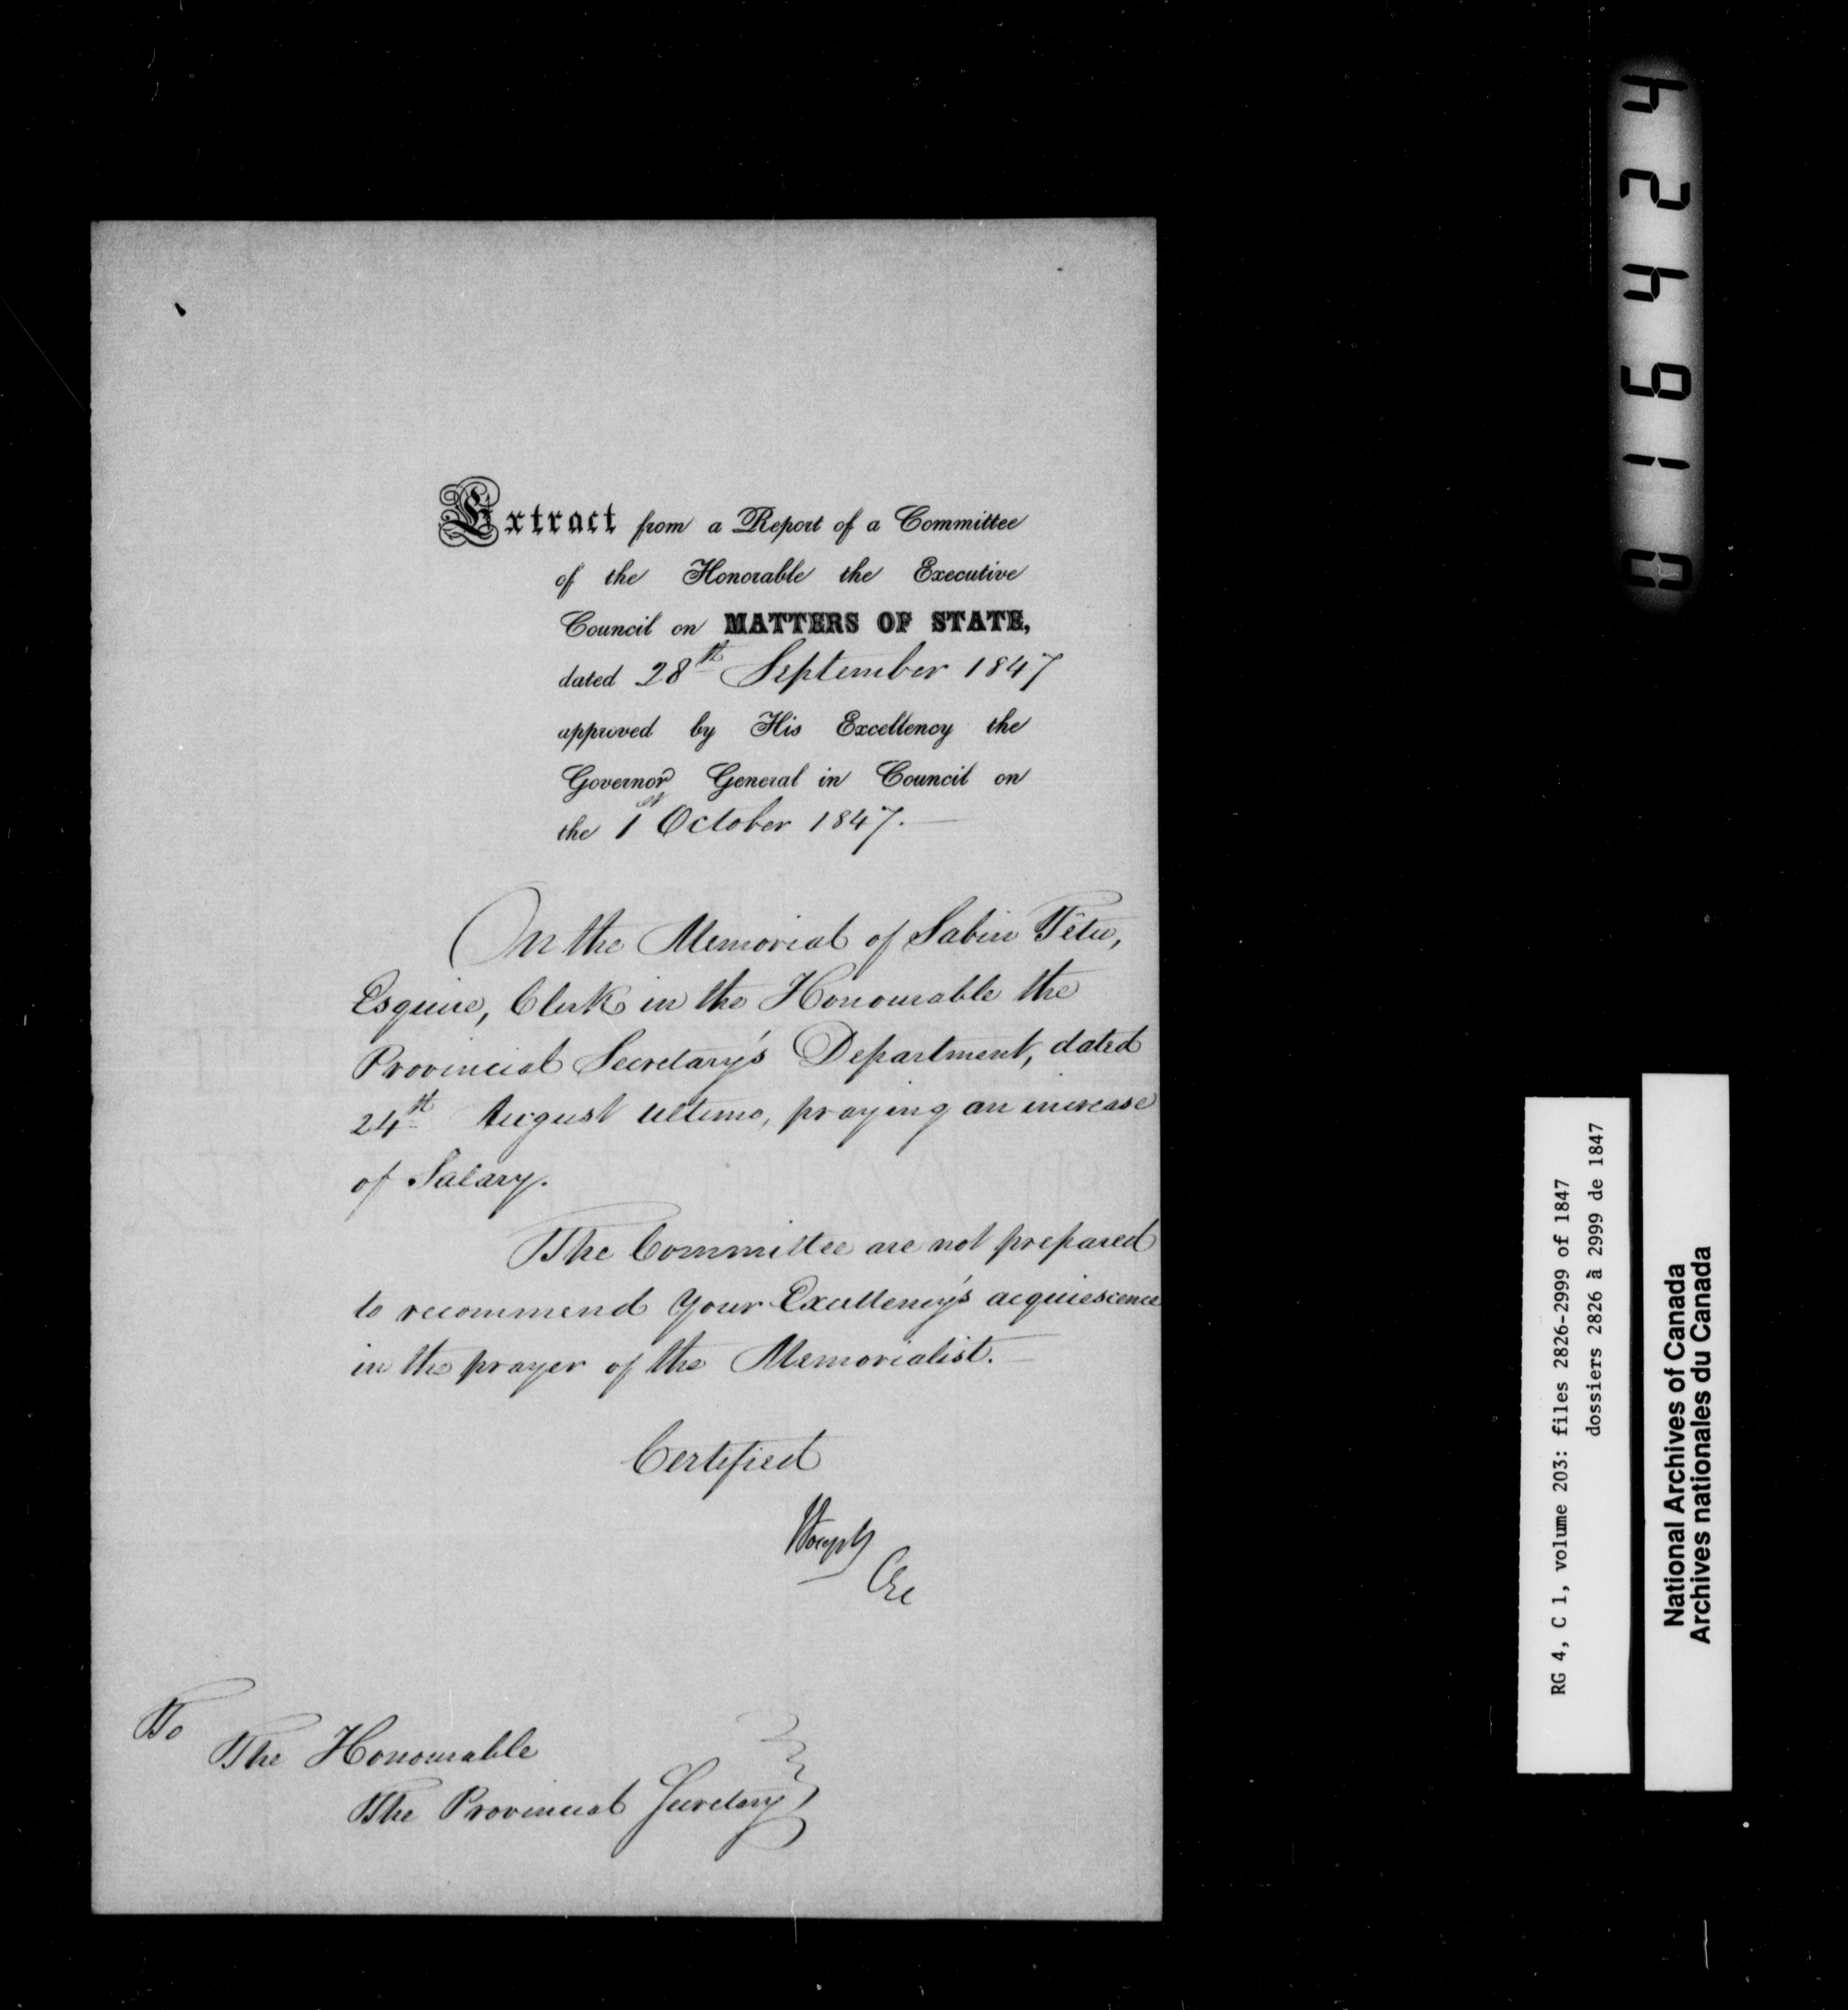 Extract from a Report of a Committee
of the Honorable the Executive
Council on MATTERS OF STATE,
dated 28th September 1847
approved by His Excellency the
Governor General in Council on
the 1st October 1847.
On the Memorial of Sabin Têtu,
Esquire, Clerk in the Honourable the
Provincial Secretary's Department, dated
24th August ultimo, praying an increase
of Salary.
The Committee are not prepared
to recommend Your Excellency's acquiescence
in the prayer of the Memorialist.
Certified
To
The Honourable
The Provincial Secretary
RG 4, C 1, volume 203: files 2826-2999 of 1847
dossiers 2826 à 2999 de 1847
National Archives of Canada
Archives nationales du Canada
016424